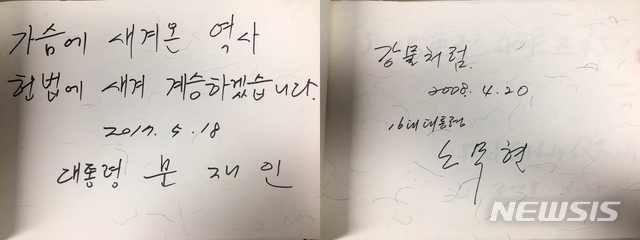 가슴에 새겨온 역사
헌법에 새겨 계승하겠습니다.
2017. 5. 18
대통령 문재인
강물처럼.
2008. 4. 20
16대 대통령
노무현
NEWSIS